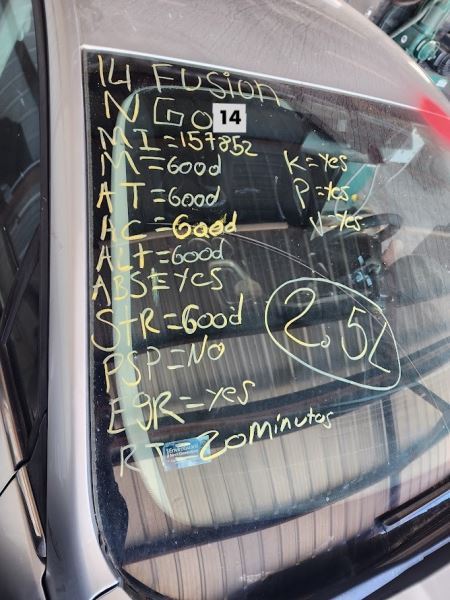 14 Fusion
N GO 14
MI=157852
M=Good
AT=Good
AC=Good
ALT=Good
ABS=YES
STR=Good
PSP=NO
EGR=yes
RT=20Minutos
K=yes
P=yes.
V=Yes
2.5L